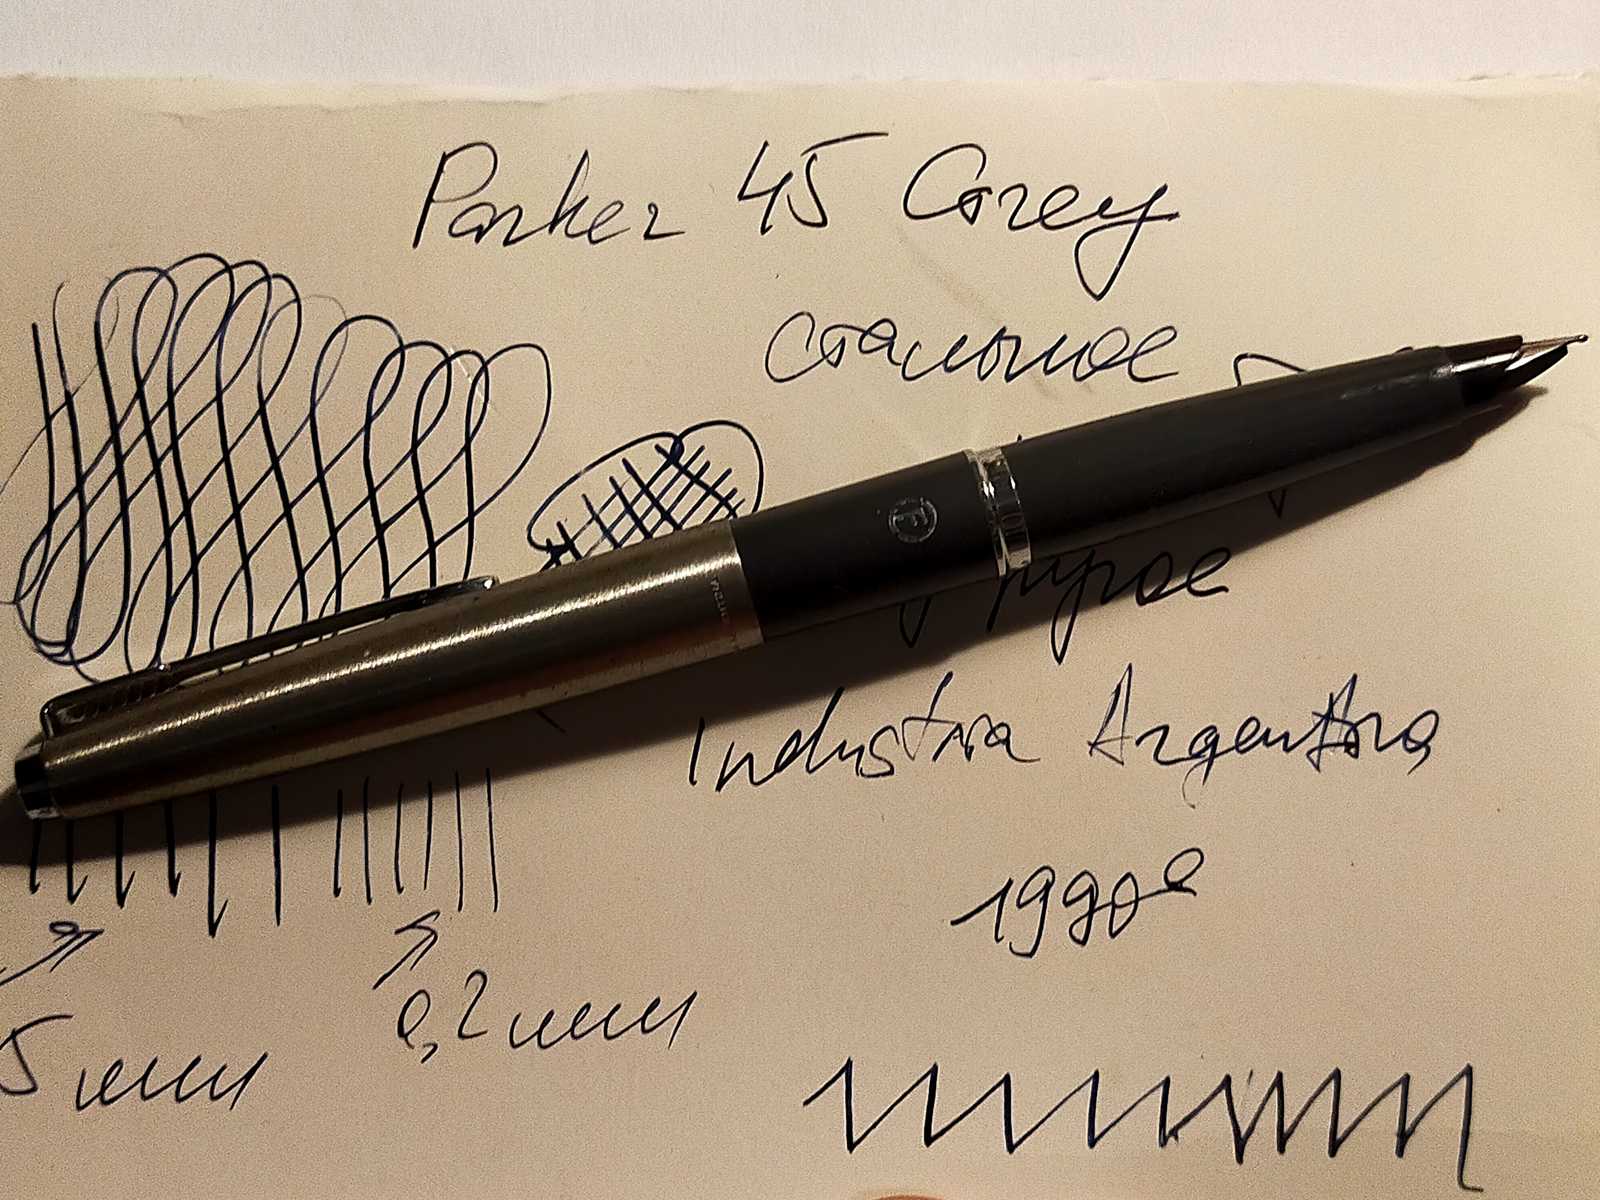 Parker 45 Grey
стальное
Industria Argentina
1990е
0,2 мм
5 мм